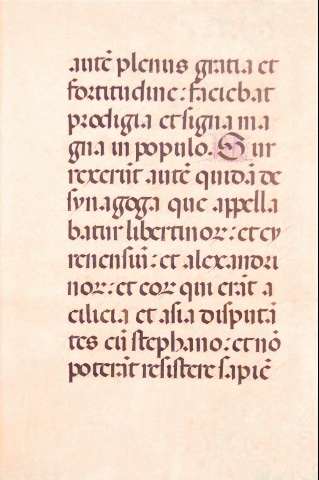 autē plenus gratia et
fortitudine: faciebat
prodigia et signa ma
gna in populo. Sur
rexerūt autē quidā de
synagoga que appella
batur libertinor: et cy
renensiū: et alexandri
nor: et eor qui erāt a
cilicia et asia disputā
tes cū stephano: et nō
poterāt resistere sapiē